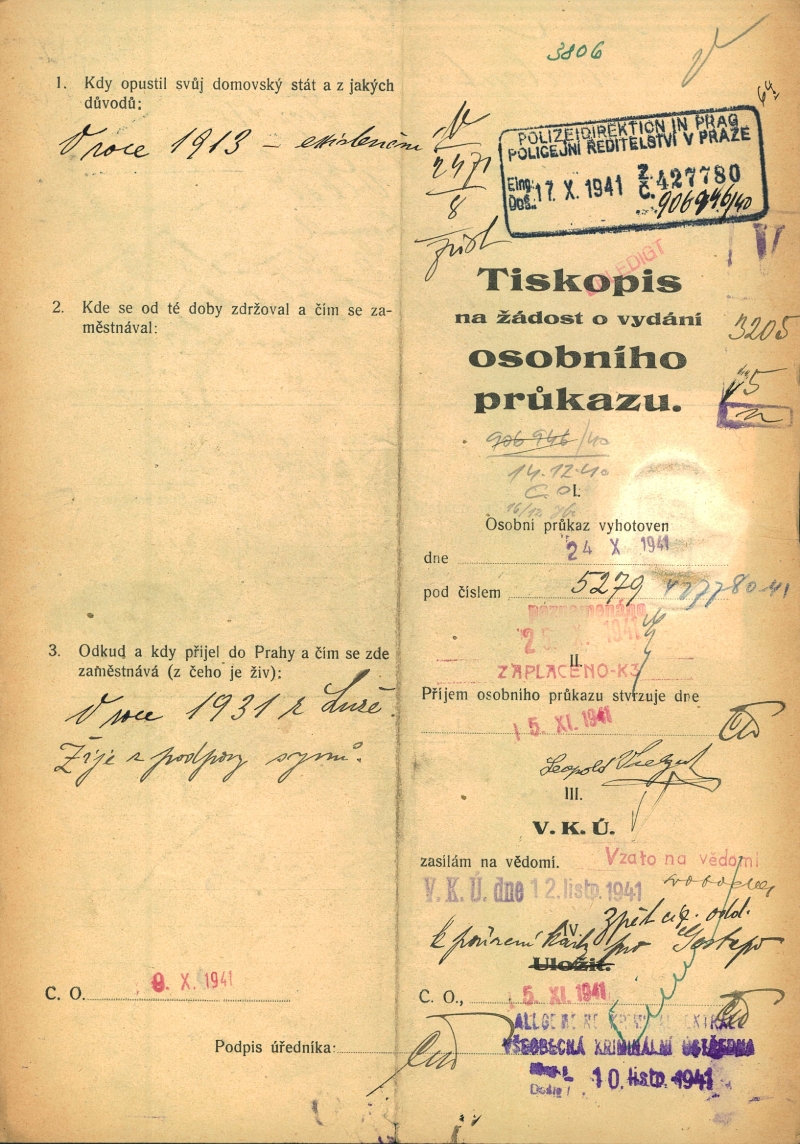 1. Kdy opustil svůj domovský stát a z jakých
důvodů:
V roce 1913 – existenční
2. Kde se od té doby zdržoval a čím se za-
městnával:
3. Odkud a kdy přijel do Prahy a čím se zde
zaměstnává (z čeho je živ):
V roce 1931 z Luže.
Žije z podpory synů.
C. O. 9. X. 1941
Podpis úředníka:
3806
IV
2471
8
POLIZEIDIREKTION IN PRAG
POLICEJNÍ ŘEDITELSTVÍ V PRAZE
Eing.
Doš. 17. X. 1941 Z. Č. 427780
906946/40
Tiskopis
na žádost o vydání
osobního
průkazu.
IV
3205
906 946/40
14.12.40
C. O.
I.
Osobní průkaz vyhotoven
dne 24 X 1941
pod číslem 5279 427780-41
poznamenáno
25. X. 1941
II.
ZAPLACENO-K3
Příjem osobního průkazu stvrzuje dne
15. XI. 1941
Leopold
III.
V. K. Ú.
zasílám na vědomí. Vzato na vědomí
V. K. Ú. dne 12. listp. 1941
zpět cig. odd.
IV.
k pořízení karty pro Gestapo
Uložit.
C. O., 15. XI. 1941
ALLGEMEINE KRIMINALZENTRALE
VŠEOBECNÁ KRIMINÁLNÍ ÚSTŘEDNA
Došlo 10. listp. 1941